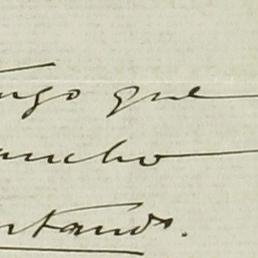 ngo que
ancho
ntando.